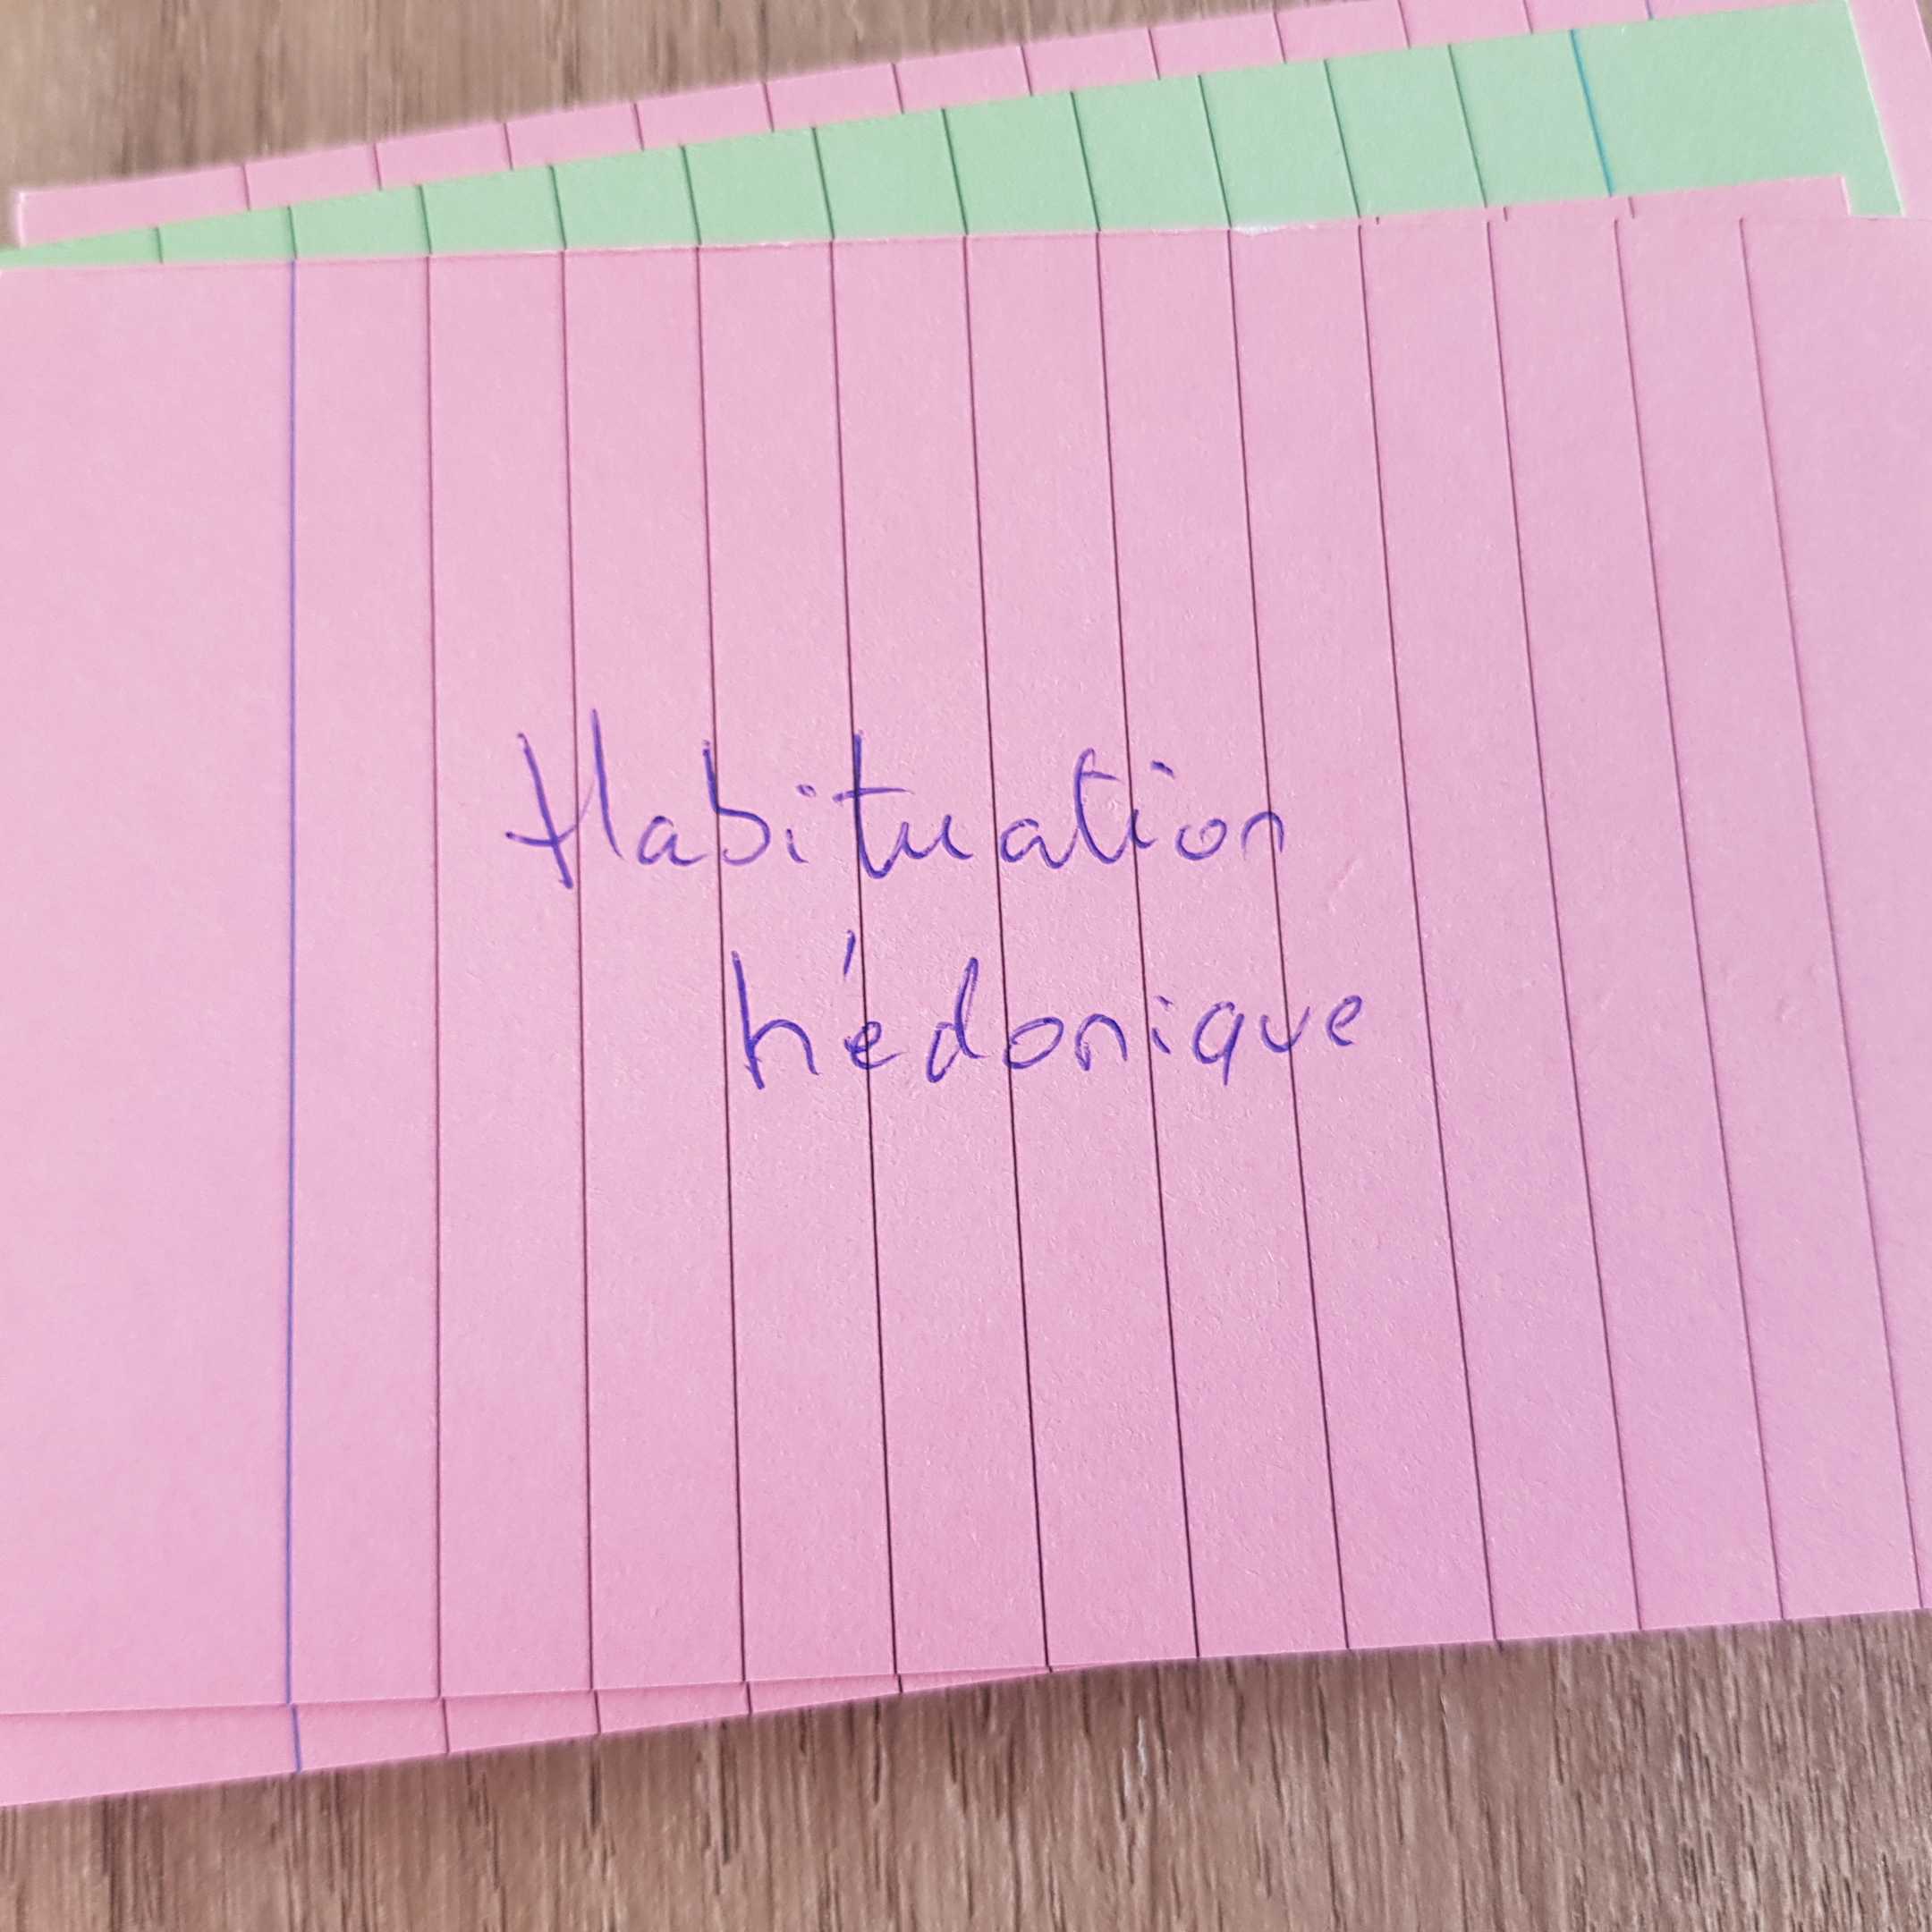 Habituation
hédonique